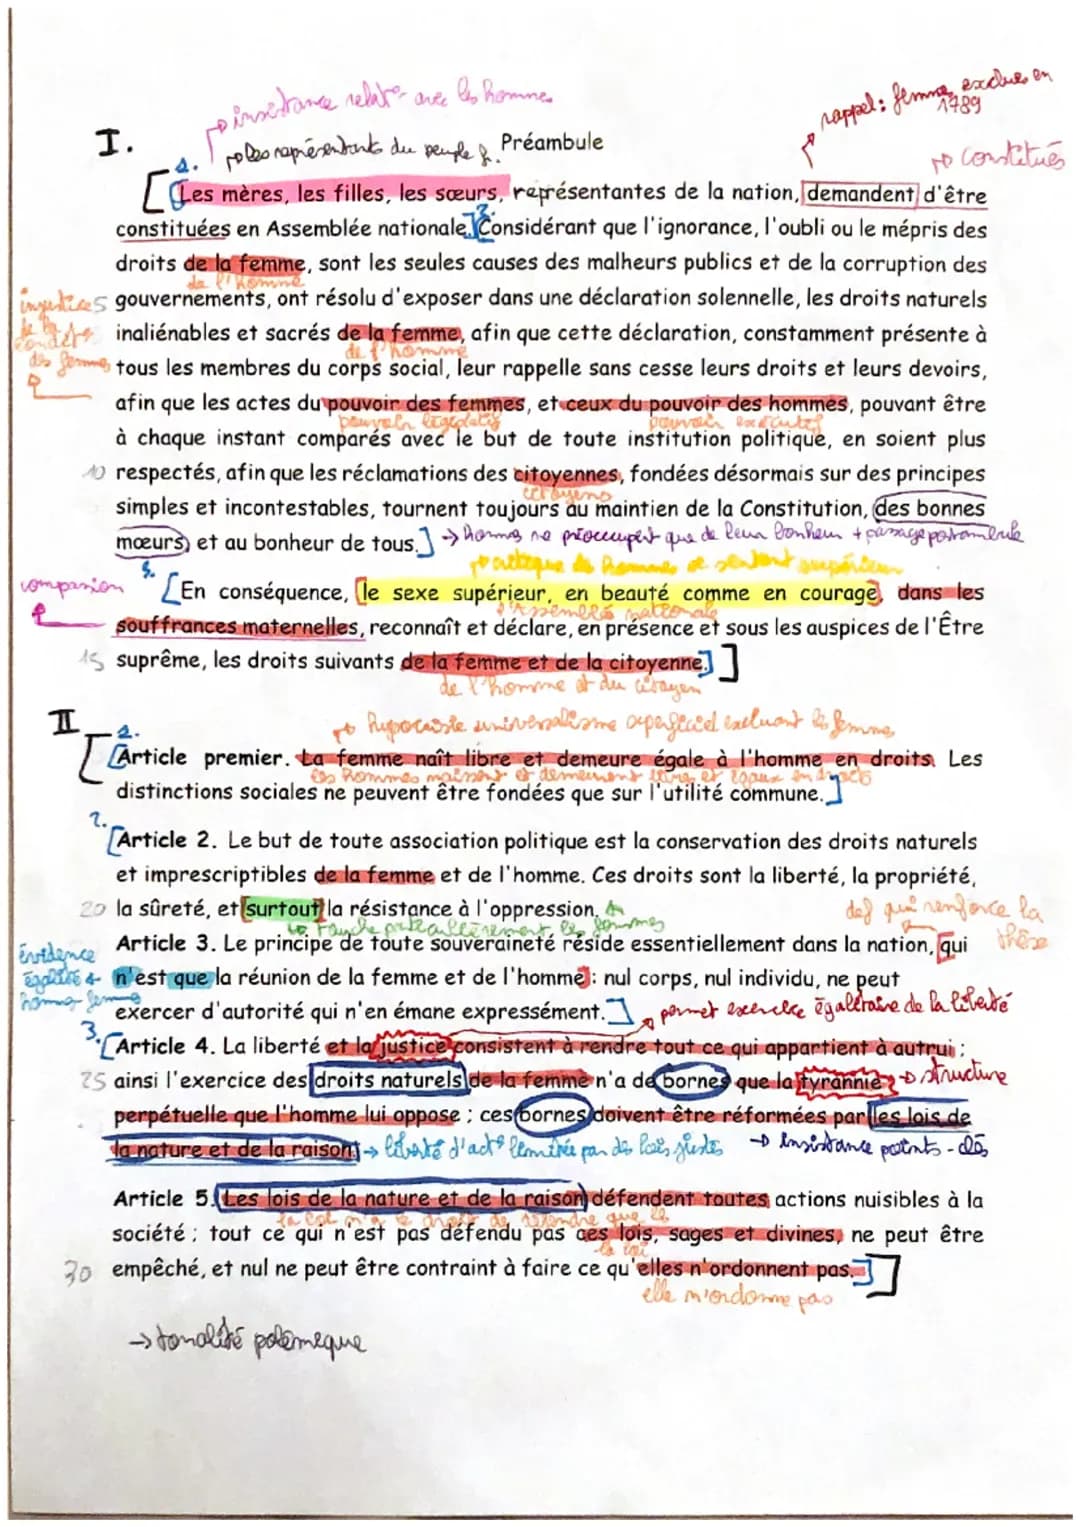 insistance relat° avec les hommes
rappel : femmes exclues en
1789
I.
→ Les représentants du peuple fr.
Préambule
→ constitués
1.
[Les mères, les filles, les sœurs, représentantes de la nation, demandent d'être
constituées en Assemblée nationale.] 2. [Considérant que l'ignorance, l'oubli ou le mépris des
droits de la femme, sont les seules causes des malheurs publics et de la corruption des
de l'homme
injustices
5 gouvernements, ont résolu d'exposer dans une déclaration solennelle, les droits naturels
inaliénables et sacrés de la femme, afin que cette déclaration, constamment présente à
de l'homme
des femmes
tous les membres du corps social, leur rappelle sans cesse leurs droits et leurs devoirs,
afin que les actes du pouvoir des femmes, et ceux du pouvoir des hommes, pouvant être
pouvoir législatif pouvoir exécutif
à chaque instant comparés avec le but de toute institution politique, en soient plus
10 respectés, afin que les réclamations des citoyennes, fondées désormais sur des principes
citoyens
simples et incontestables, tournent toujours au maintien de la Constitution, des bonnes
mœurs, et au bonheur de tous.] → hommes ne préoccupent que de leur bonheur + passage préambule
→ critique des hommes se sentent supérieurs
3.
comparaison
[En conséquence, le sexe supérieur, en beauté comme en courage, dans les
l'Assemblée nationale
souffrances maternelles, reconnaît et déclare, en présence et sous les auspices de l'Être
15 suprême, les droits suivants de la femme et de la citoyenne.]]
de l'homme et du citoyen
II
→ hypocrisie universalisme superficiel excluant les femmes
1.
[[Article premier. La femme naît libre et demeure égale à l'homme en droits. Les
Les hommes naissent et demeurent libres et égaux en droits
distinctions sociales ne peuvent être fondées que sur l'utilité commune.]
2.
[Article 2. Le but de toute association politique est la conservation des droits naturels
et imprescriptibles de la femme et de l'homme. Ces droits sont la liberté, la propriété,
20 la sûreté, et surtout la résistance à l'oppression.
→ touche particulièrement les femmes
def qui renforce la
thèse
Article 3. Le principe de toute souveraineté réside essentiellement dans la nation, qui
évidence
égalité
homme femme
n'est que la réunion de la femme et de l'homme : nul corps, nul individu, ne peut
exercer d'autorité qui n'en émane expressément.]
→ permet exercice égalitaire de la liberté
3.
[Article 4. La liberté et la justice consistent à rendre tout ce qui appartient à autrui ;
25 ainsi l'exercice des droits naturels de la femme n'a de bornes que la tyrannie → structure
perpétuelle que l'homme lui oppose ; ces bornes doivent être réformées par les lois de
la nature et de la raison. → liberté d'act° limitée par des lois justes → insistance points-clés
Article 5. Les lois de la nature et de la raison défendent toutes actions nuisibles à la
la loi n'a le droit de défendre que les
société ; tout ce qui n'est pas défendu pas ces lois, sages et divines, ne peut être
la loi
30 empêché, et nul ne peut être contraint à faire ce qu'elles n'ordonnent pas.]]
elle n'ordonne pas
→ tonalité polémique